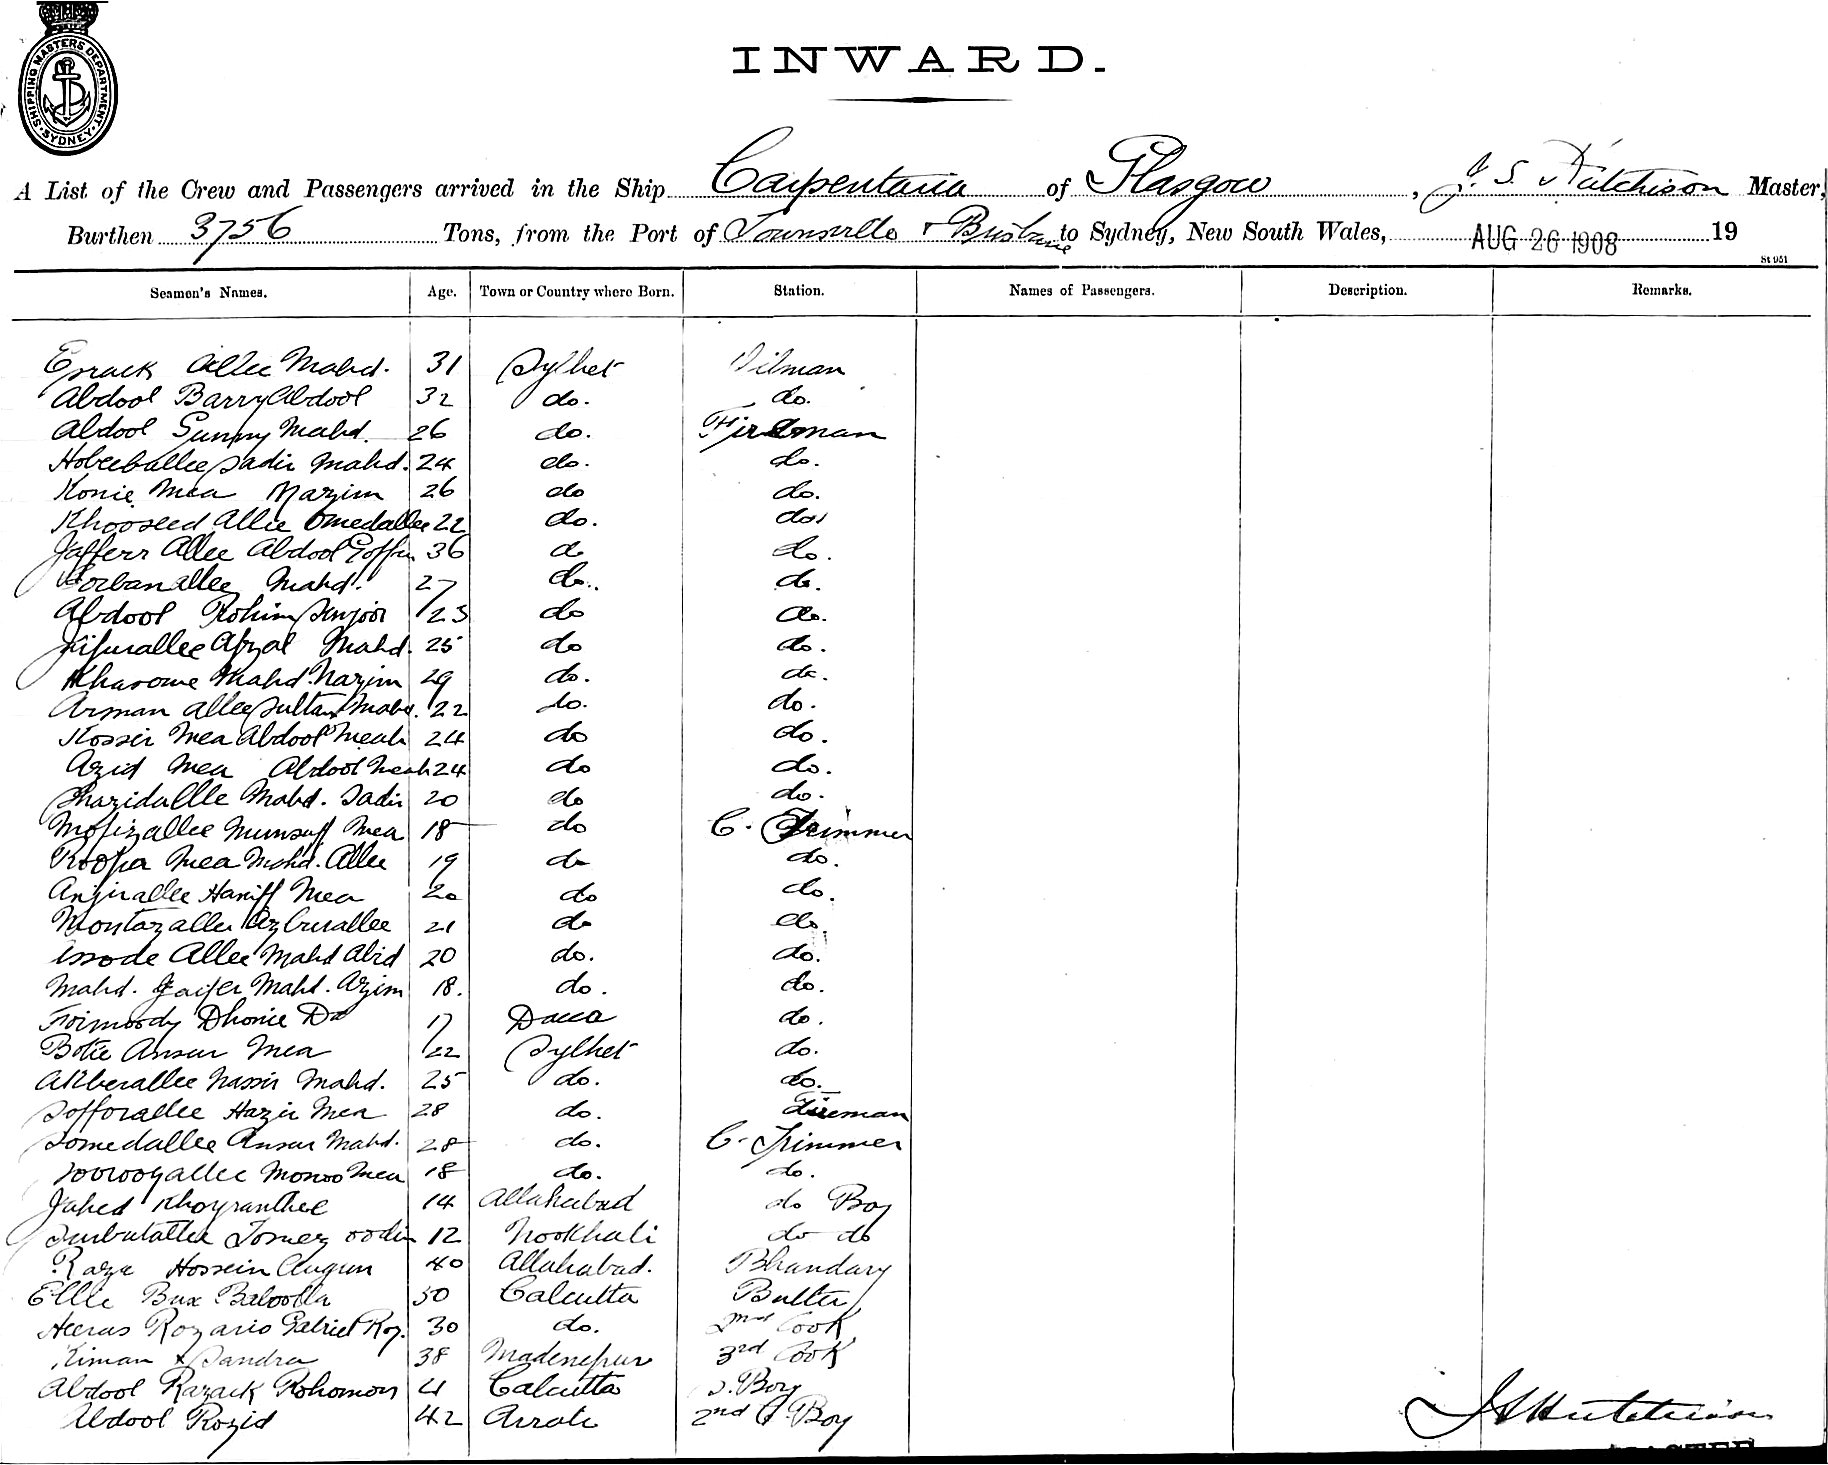 SHIPPING MASTERS DEPARTMENT SYDNEY
INWARD.
A List of the Crew and Passengers arrived in the Ship Carpentaria of Glasgow, J. S. Hutchison Master,
Burthen 3756 Tons, from the Port of Townsville & Brisbane to Sydney, New South Wales, AUG 26 1908 19
St 951
Seamen's Names. Age. Town or Country where Born. Station. Names of Passengers. Description. Remarks.
Esrack Allee Mahd. 31 Sylhet Oilman
Abdool Barry Abdool 32 do. do.
Abdool Gunny Mahd. 26 do. Fireman
Hobeeballee Sadir Mahd. 24 do. do.
Konie Mea Nazim 26 do do.
Khooseed Allie Omedallee 22 do. do
Jafferr Allee Abdool Goffur 36 do do.
Korbanallee Mahd. 27 do. do.
Abdool Rohim Sunjoor 23 do do.
Allee Afzal Mahd. 25 do do.
Mahd. Nazim 29 do. do.
Arman Allee Sultan Mahd. 22 do. do.
Kossir Mea Abdool Meah 24 do do.
Azid Mea Abdool Meah 24 do do.
Shazidallle Mahd. Sadir 20 do do.
Mofizallee Munsuff Mea 18 do C. Trimmer
Roopa Mea Mahd. Allee 19 do do.
Anjirallee Haniff Mea 20 do do.
Montazallee 21 do do.
Allee Mahd Abid 20 do. do.
Mahd. Jaifer Mahd. Azim 18. do. do.
Foimoody Dhonie Do 17 Dacca do.
Botie Ansur Mea 22 Sylhet do.
Akberallee Nassir Mahd. 25 do. do.
Sofforallee Hazir Mea 28 do. Fireman
Somedallee Ansur Mahd. 28 do. C. Trimmer
Monoo Mea 18 do. do.
Jahed 14 Allahabad do Boy
12 Nookhali do do
Raza Hossein 40 Allahabad. Bhandary
Ellie Bux Baloolla 50 Calcutta Butler
Rozario Gabriel Roz. 30 do. 2nd Cook
Kiman 38 Madenepur 3rd Cook
Abdool Razack Rohomon 41 Calcutta S. Boy
Abdool Rozid 42 Arrah 2nd S. Boy
J S Hutchison
MASTER